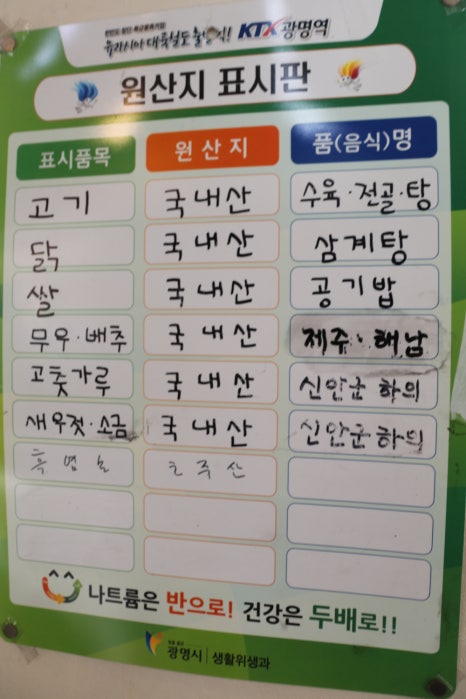 유라시아 대륙철도 출발지! KTX 광명역
원산지 표시판
표시품목 원산지 품(음식)명
고기 국내산 수육·전골·탕
닭 국내산 삼계탕
쌀 국내산 공기밥
무우·배추 국내산 제주·해남
고춧가루 국내산 신안군 하의
새우젓·소금 국내산 신안군 하의
흑염소
나트륨은 반으로! 건강은 두배로!!
광명시 생활위생과